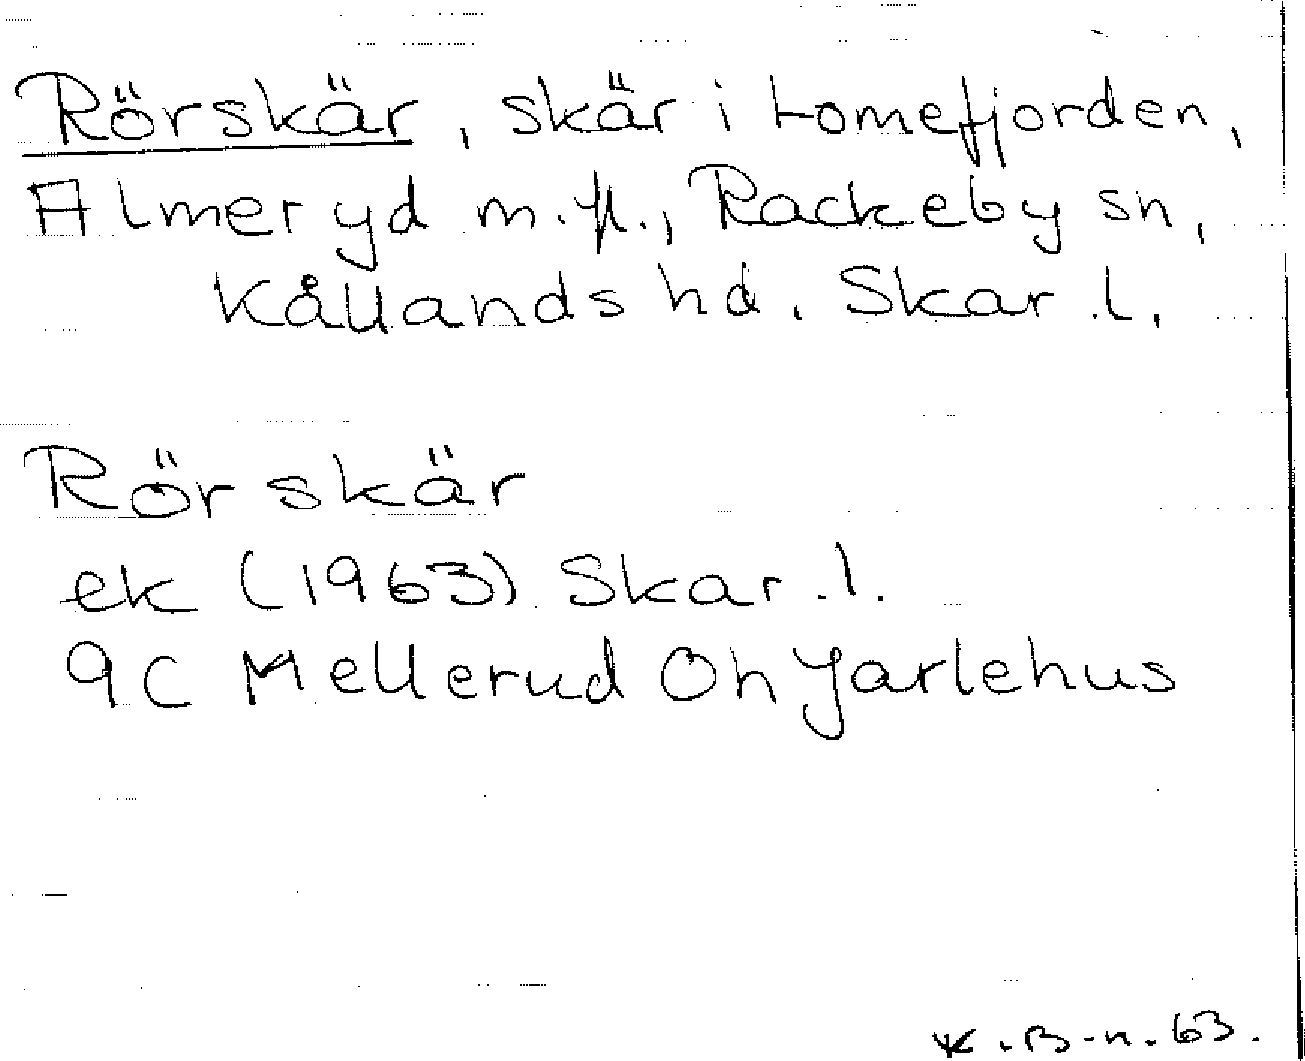 Rörskär, skär i Lomefjorden,
Almeryd m.fl., Rackeby sn,
Kållands hd. Skar.l.
Rörskär
ek (1963) Skar.l.
9C Mellerud Oh Jarlehus
K.B-n.63.